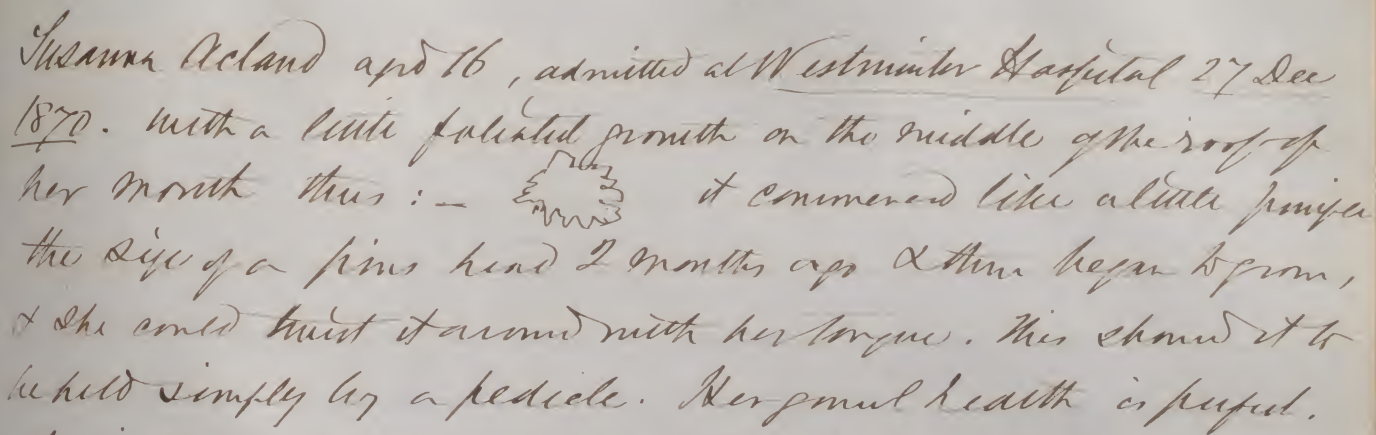 Susanna Acland aged 16, admitted at Westminster Hospital 27 Dec
1870. with a little foliated growth on the middle of the roof of
her mouth thus : - it commenced like a little pimple
the size of a pins head 2 months ago & then began to grow,
& she could twist it around with her tongue. This showed it to
be held simply by a pedicle. Her general health is perfect.